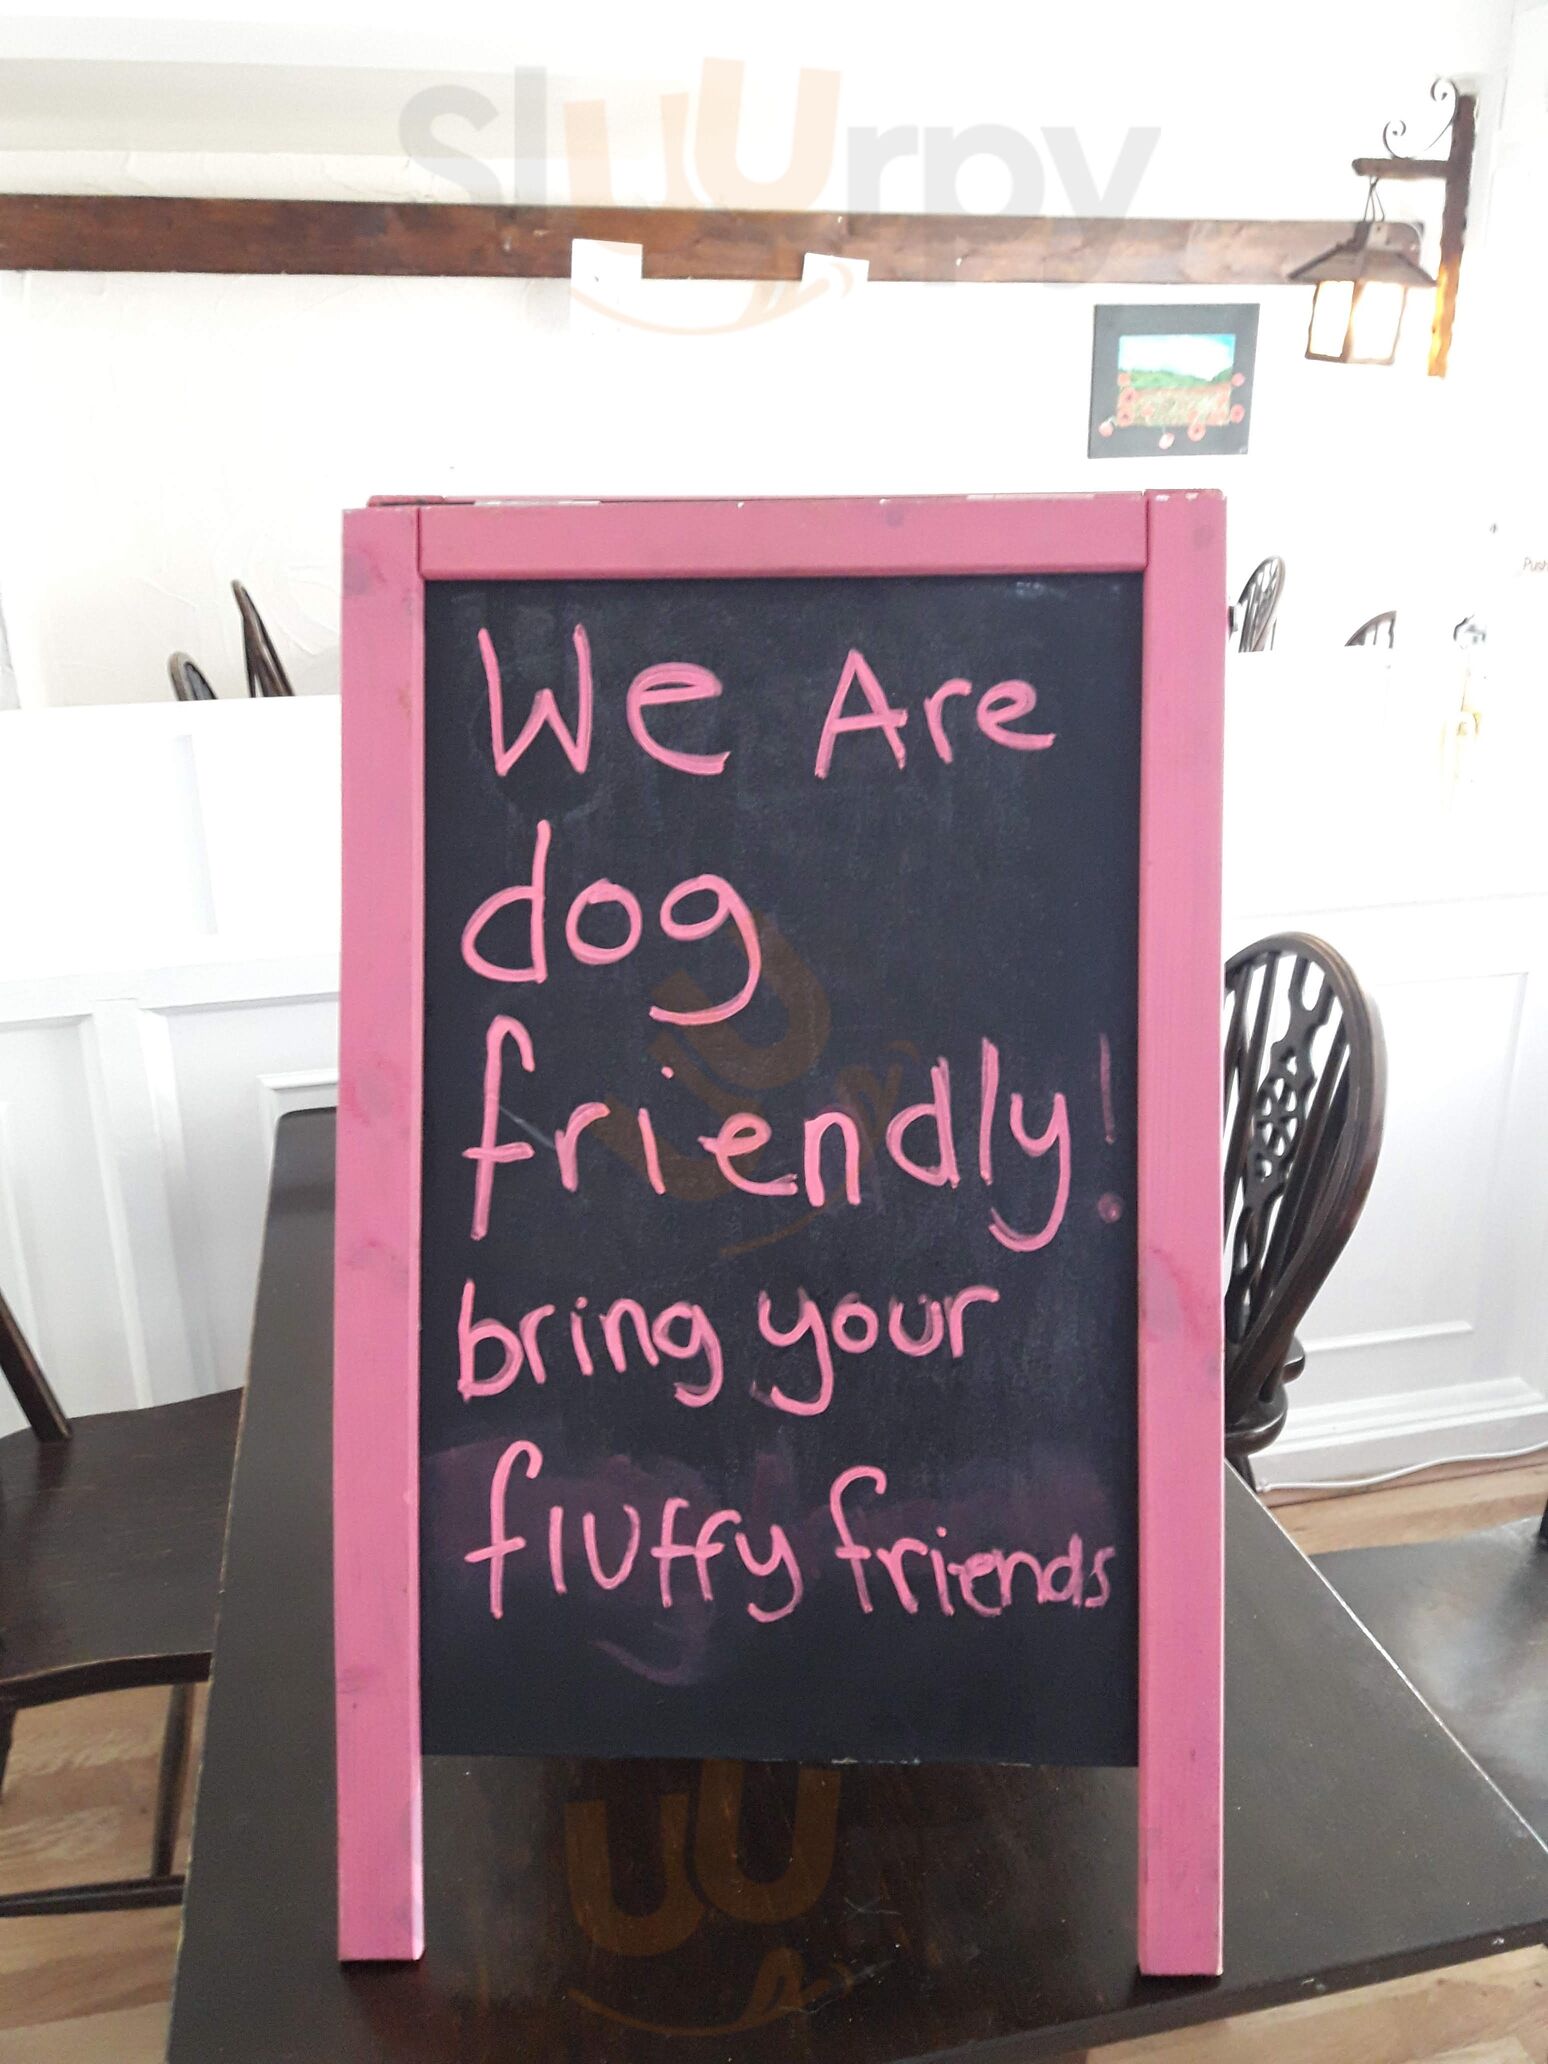 Sluurpy
Push
We Are
dog
friendly!
bring your
fluffy friends